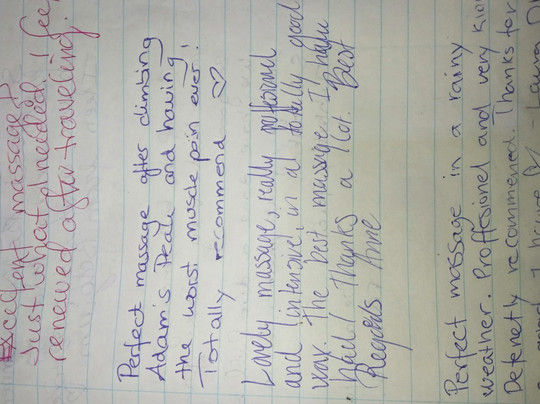 Excellent massage!
Just what I needed, I feel
renewed after traveling.
Perfect massage after climbing
Adam's Peak and having
the worst muscle pain ever!
Totally recommend ♡
Lovely massage, really proffesional
and intensive, in a totally good
way. The best massage I have
had! Thanks a lot. Best
Regards Anne
Perfect massage in a rainy
weather. Proffesional and very kind
Defenetly recommended. Thanks for